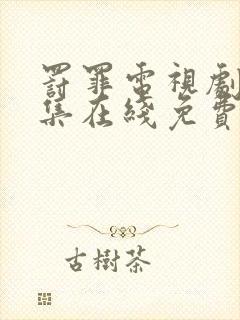 罰罪電視劇
集在綫免費
古樹茶